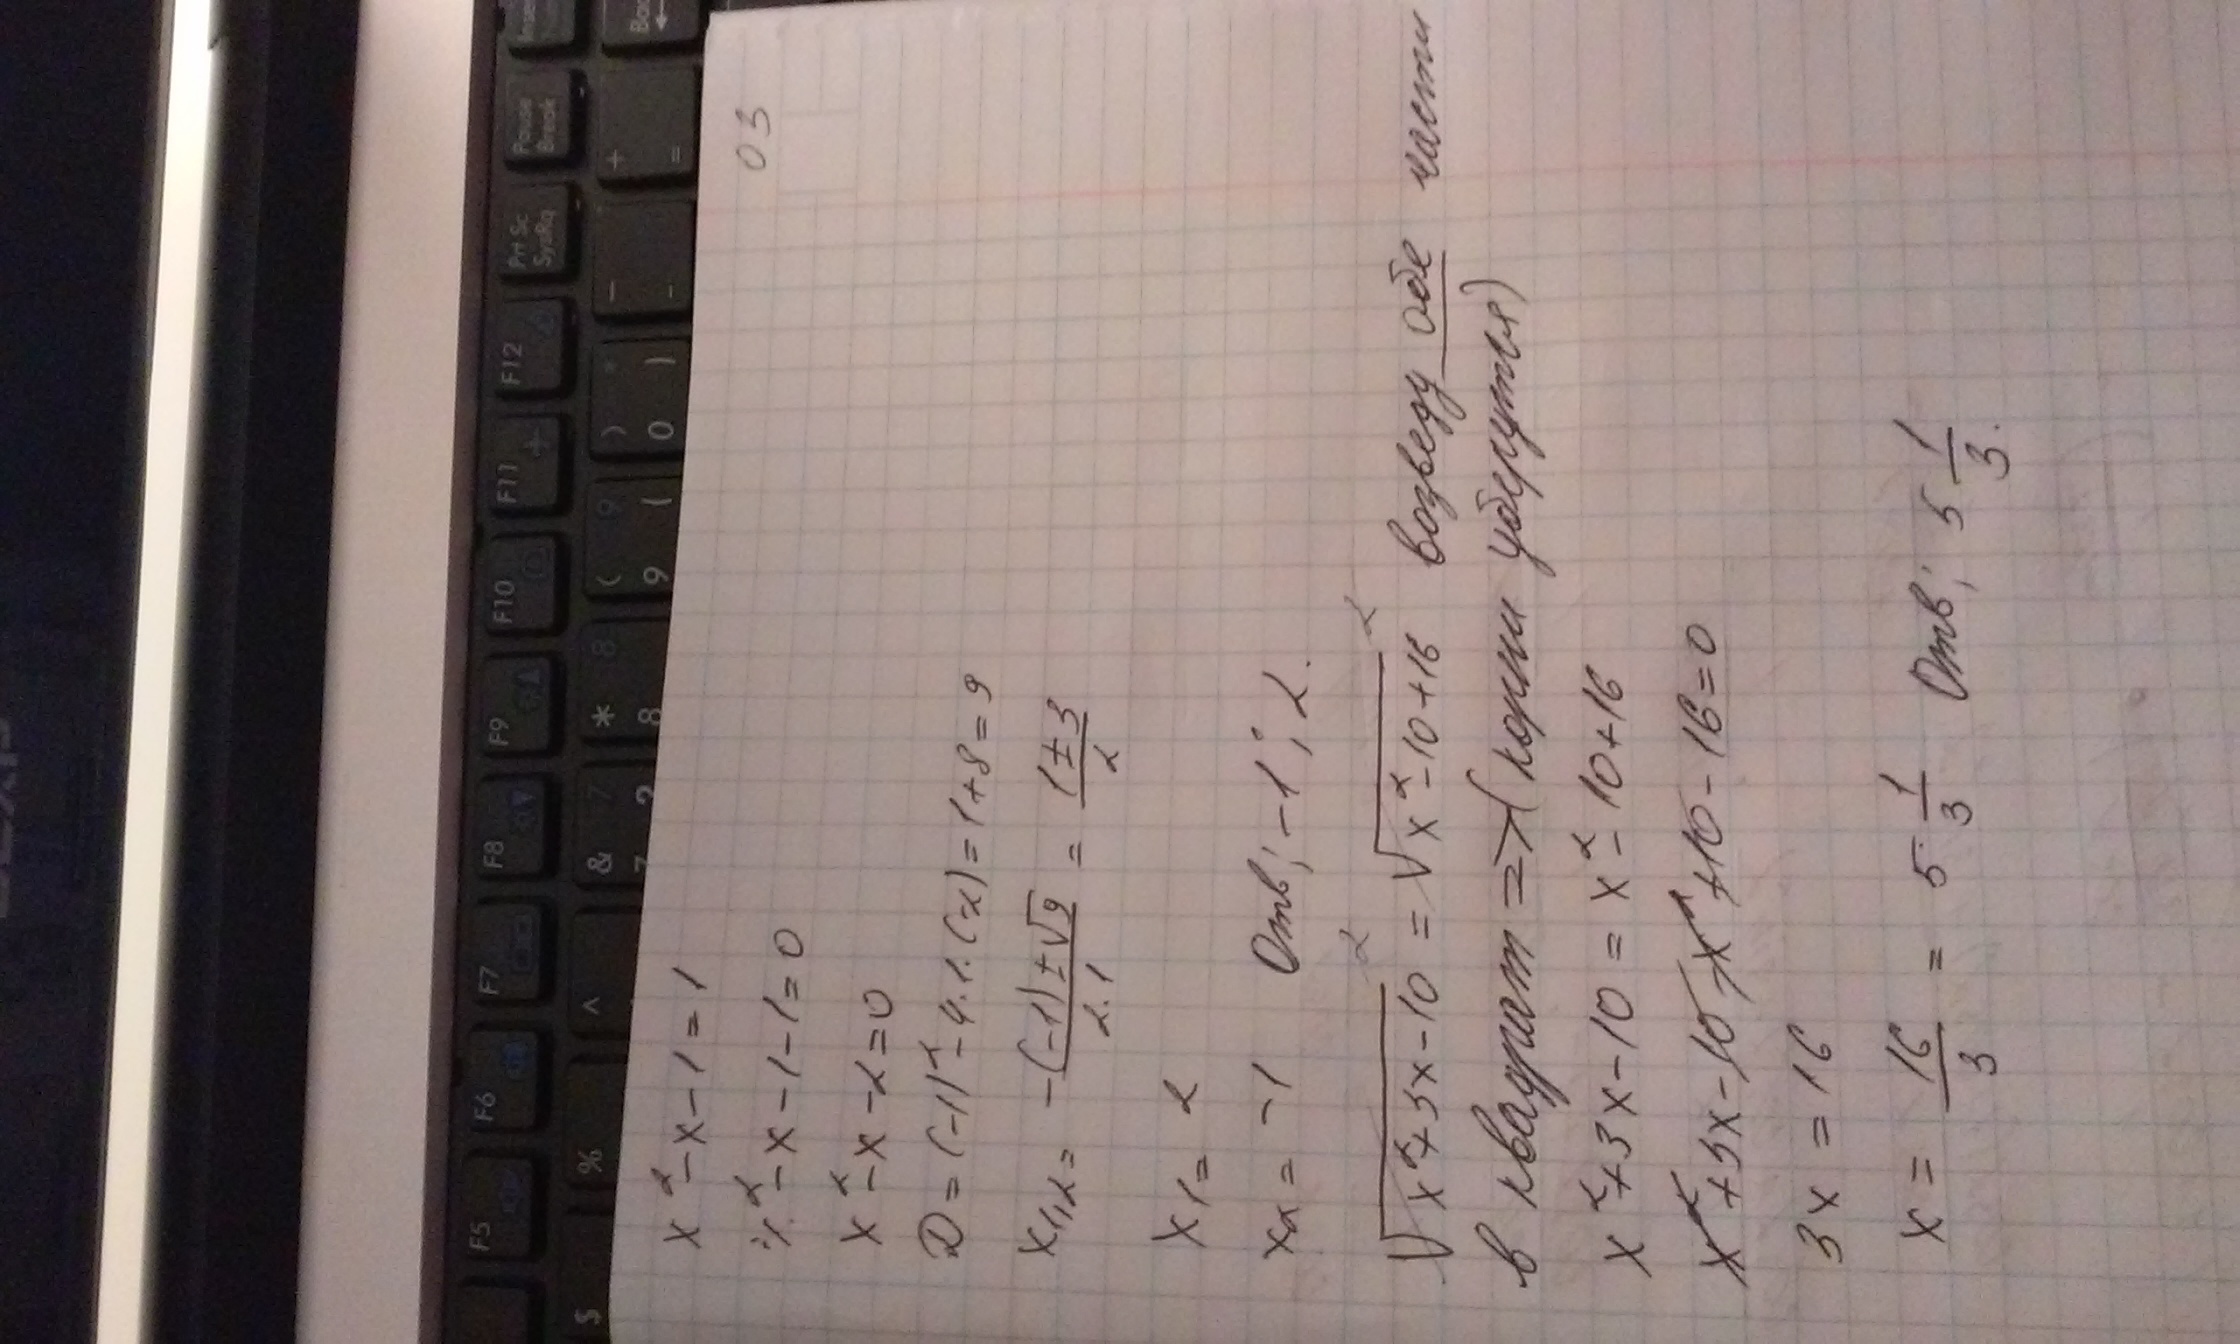 03
x² - x - 1 = 1
x² - x - 1 - 1 = 0
x² - x - 2 = 0
D = (-1)² - 4·1·(-2) = 1 + 8 = 9
x₁,₂ = (-(-1) ± √9) / (2·1) = (1 ± 3) / 2
x₁ = 2
x₂ = -1 Отв; -1; 2.
√(x² + 3x - 10)² = √(x² - 10 + 16)² возведу обе части
в квадрат => (корни уберутся)
x² + 3x - 10 = x² - 10 + 16
x² + 3x - 10 - x² + 10 - 16 = 0
3x = 16
x = 16/3 = 5 1/3 Отв; 5 1/3.
F5 F6 F7 F8 F9 F10 F11 F12 Prt Sc SysRq Pause Break
$ % ^ & 7 * 8 ( 9 ) 0 _ - + =